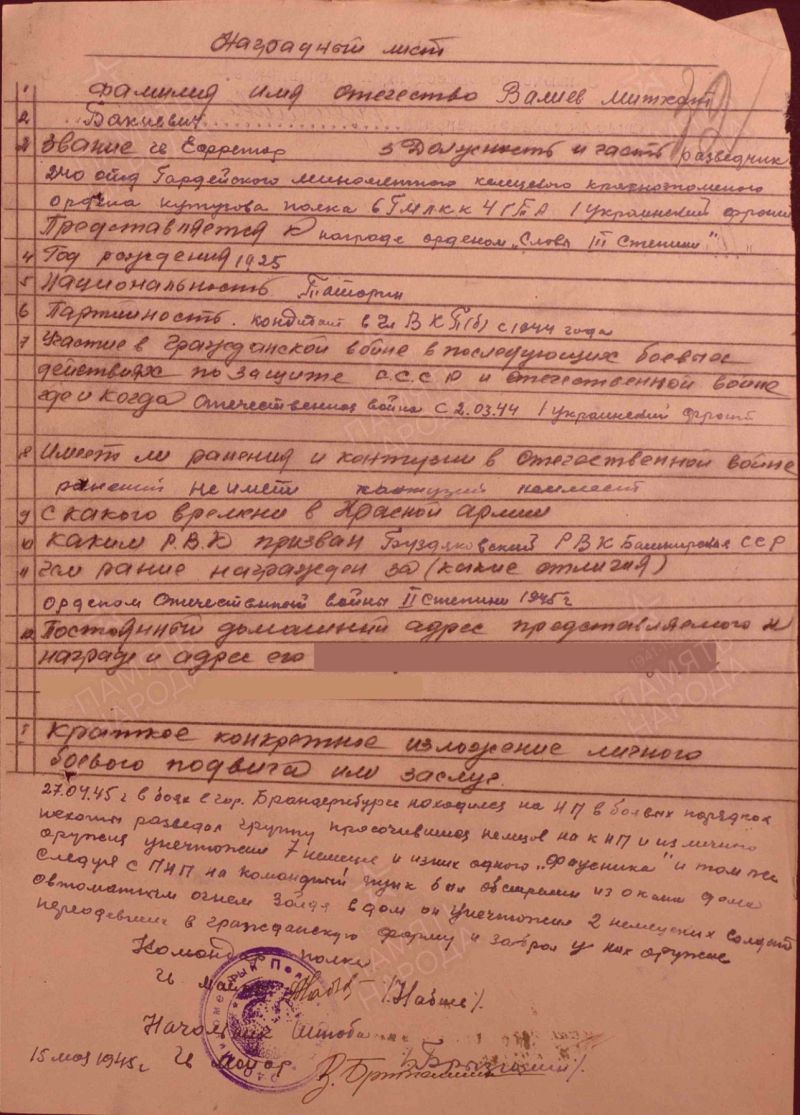 Наградный лист
1 Фамилия имя отечество Валиев Митхат
2 Бакиевич
2 Звание гв Ефрейтор 3 Должность и часть разведчик
240 Гвардейского минометного келецкого краснознаменого
ордена кутузова полка 6 ГМК 4 ГТА 1 украинский фронт
Представляется к награде орденом „Слова III степени"
4 Год рождения 1925
5 Национальность Татарин
6 Партийность. кондитат в чл ВКП(б) с 1944 года
7 Участие в гражданской войне в последующих боевые
действиях по защите СССР и отечественной войне
где и когда отечественная война с 2.03.44 1 украинский фронт
8 Имеет ли ранения и контузии в отечественной войне
ранений не имети контузий неимеет
9 С какого времени в Красной армии
10 каким Р.В.К призван Буздяковский РВК Башкирская ССР
11 Чем рание награжден за (какие отличия)
орденом Отечественной войны II степини 1945 г
12 Постоянный домашний адрес представляемого к
награде и адрес его
1 Краткое конкретное изложение личного
боевого подвига или заслуг.
27.04.45 г в боях в гор. Бранденбурге находился на НП в боевых порядках
пехоты разведал группу просочившихся немцев на к НП и из личного
оружия унечтожил 7 немцев и из них одного „фаусника" и там же
следуя с ПНП на командный пунк был обстрелян из окани дома
автоматным огнем зайдя в дом он унечтожил 2 немецких солдат
переодевшие в гражданскую форму и забрал у них оружие
Командир полка
Гв Майор
Начальник Штаба
15 мая 1945 г Гв майор
ПАМЯТЬ НАРОДА